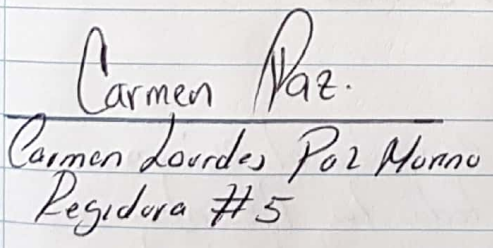 Carmen Paz.
Carmen Lourdes Paz Morno
Regidora #5